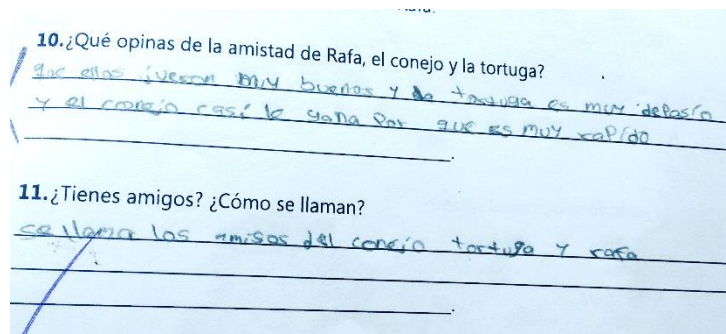 10. ¿Qué opinas de la amistad de Rafa, el conejo y la tortuga?
que ellos jueson muy buenos y la tortuga es muy depasio
y el conejo casi le gana por que es muy rapido
11. ¿Tienes amigos? ¿Cómo se llaman?
se llama los amisos del conejo tortuga y rafa